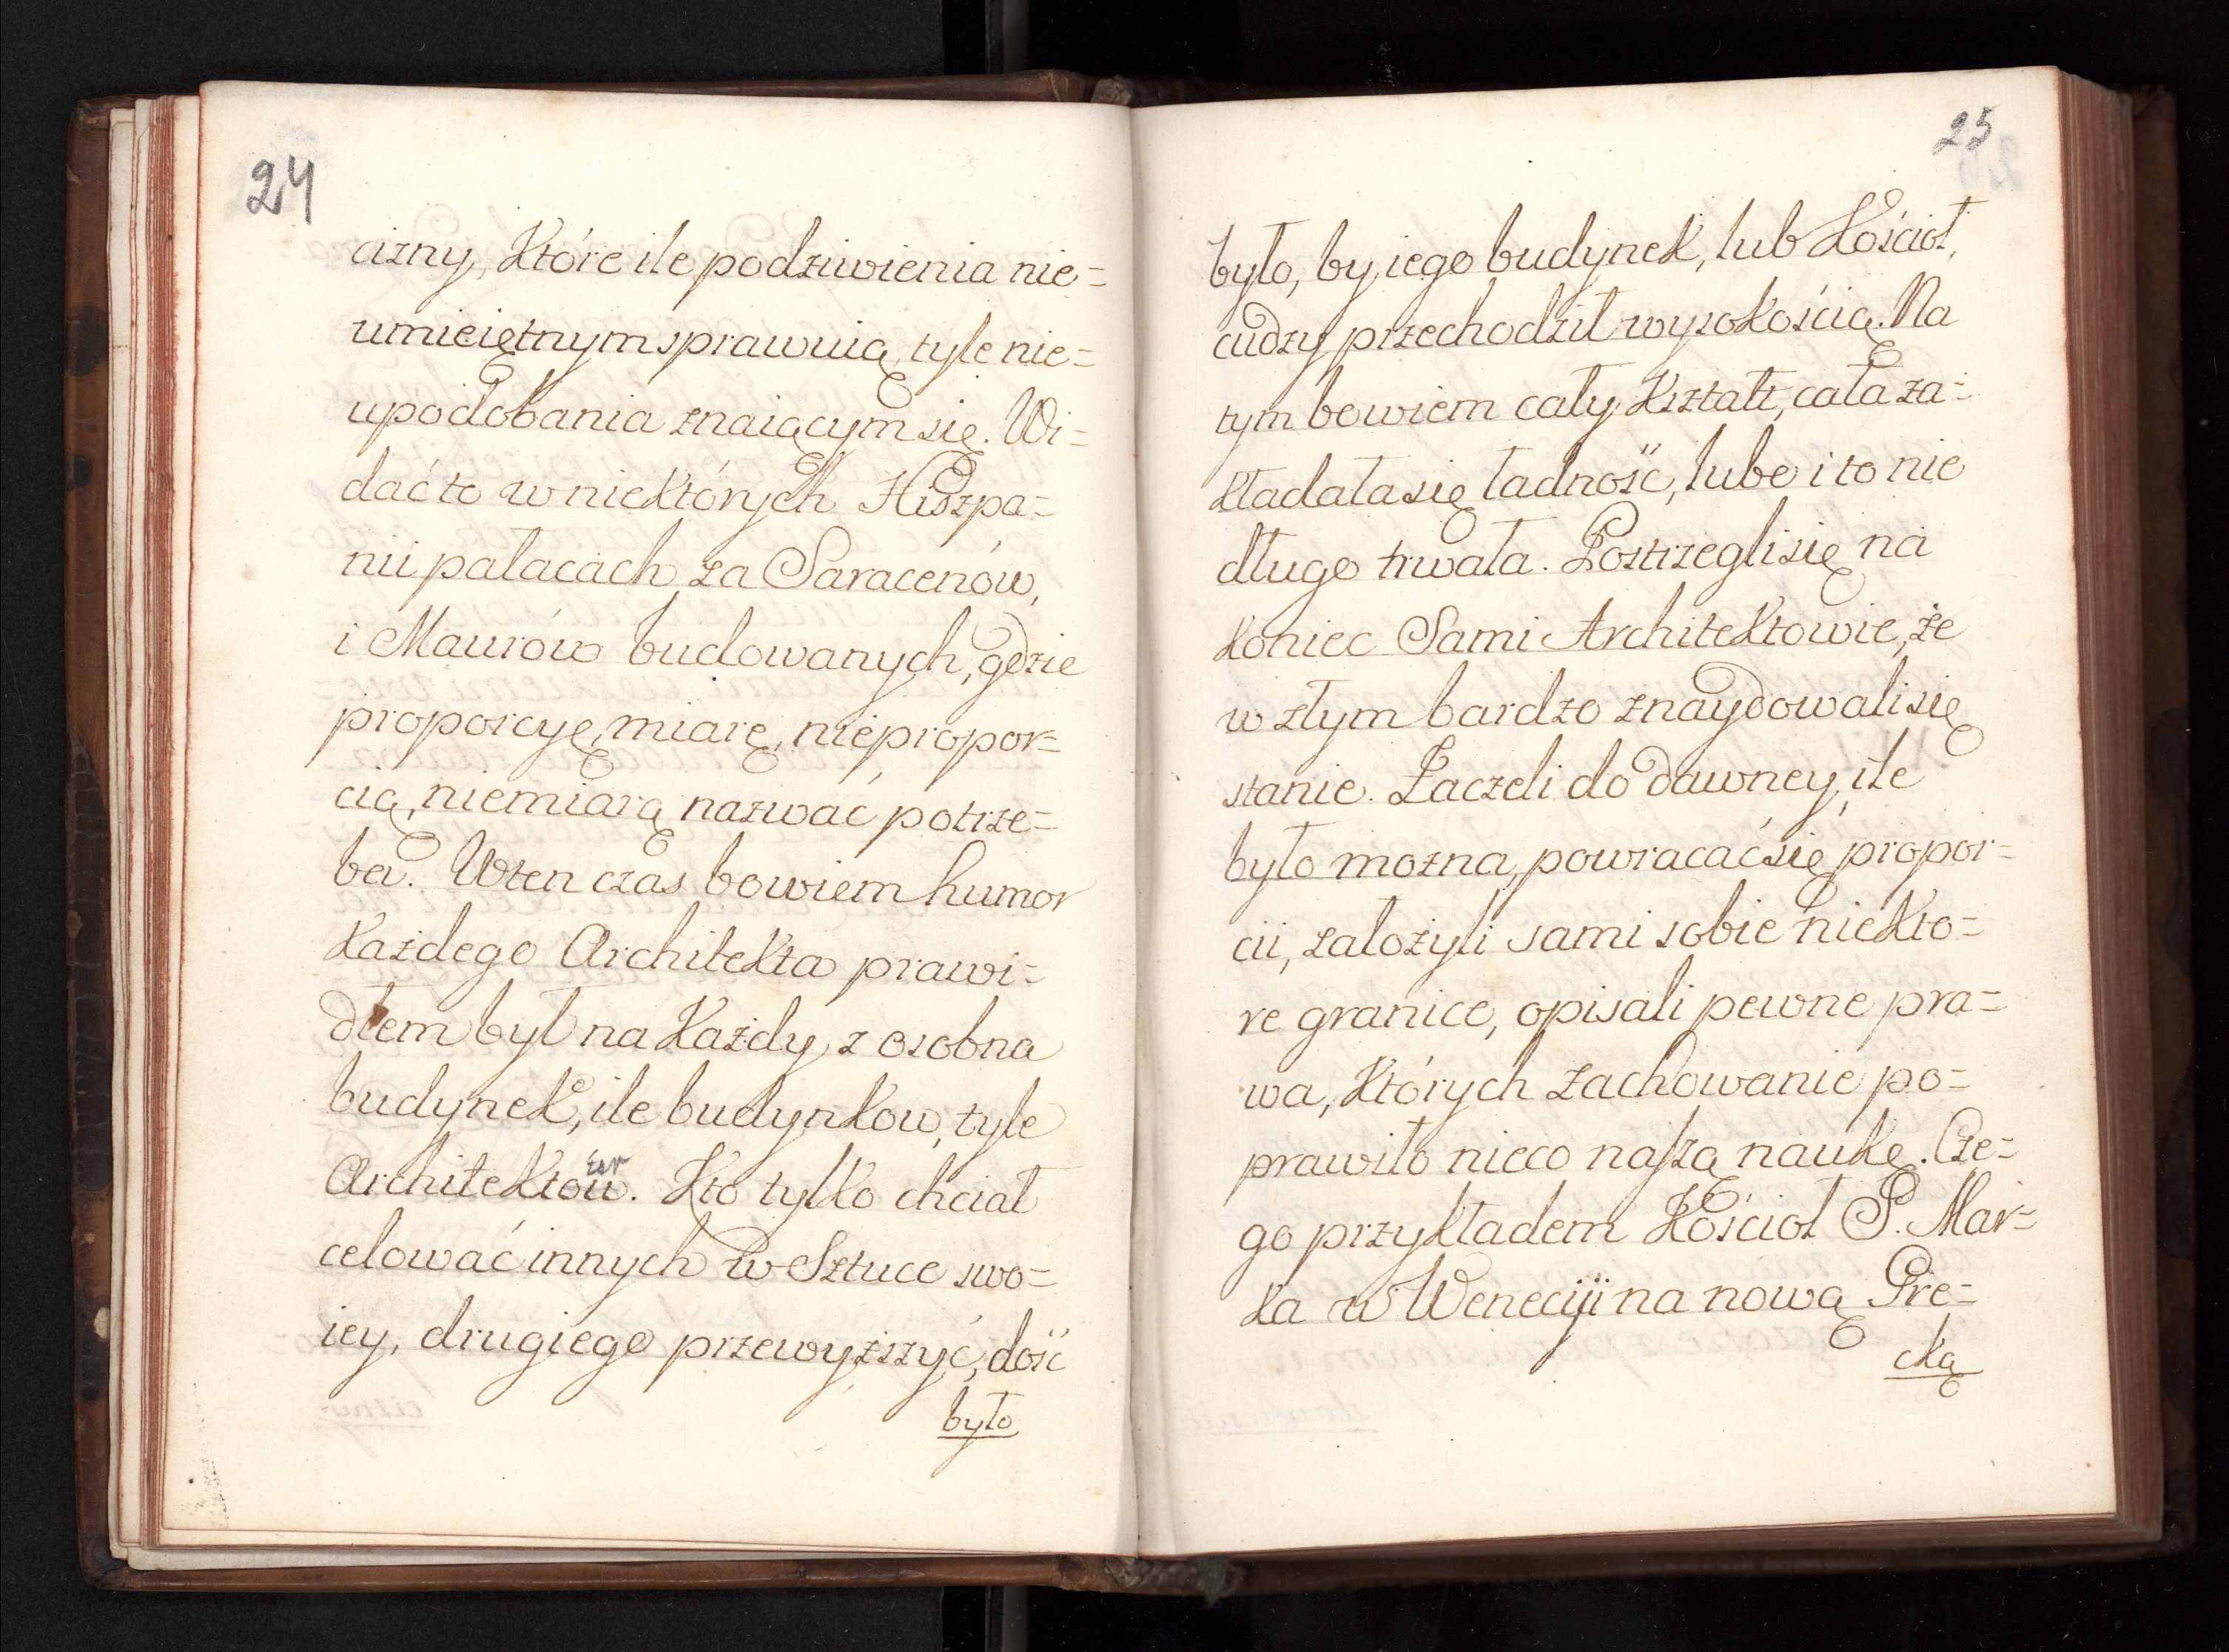 24
cizny, Które ile podziwienia nie=
umieiętnym sprawuią, tyle nie=
upodobania znaiącym się. Wi=
dać to w niektórych Hiszpa=
nii pałacach za Saracenów,
i Maurów budowanych, gdzie
proporcyę, miarę, niepropor=
cią, niemiarą nazwać potrze=
ba. Wten czas bowiem humor
Każdego Architekta prawi=
dłem był na Każdy z osobna
budynek, ile budynkow, tyle
Architektów.
Kto tylko chciał
celować innych w Sztuce swo=
iey, drugiego przewyższyć, dość
było
25
było, by iego budynek, lub Kościoł,
cudzy przechodził wysokością. Na
tym bowiem cały Kształt, cała za=
kładała się ładność, lubo i to nie
długo trwała. Postrzegli się na
koniec Sami Architektowie, że
w złym bardzo znaydowali się
stanie. Zaczeli do dawney, ile
było mozna, powracać się propor=
cii, założyli sami sobie niekto=
re granice, opisali pewne pra=
wa, Których zachowanie po=
prawiło nieco naszą naukę. Cze=
go przykładem Kościoł S. Mar=
ka w Weneciji na nową Gre=
cką